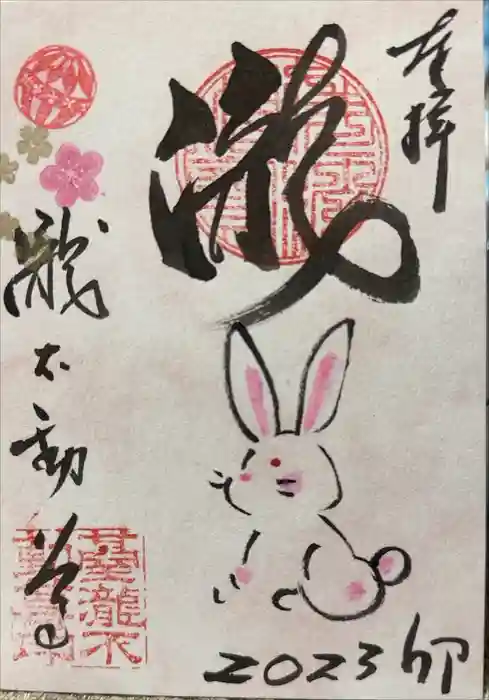 奉拝
瀧
瀧不動尊
2023 卯